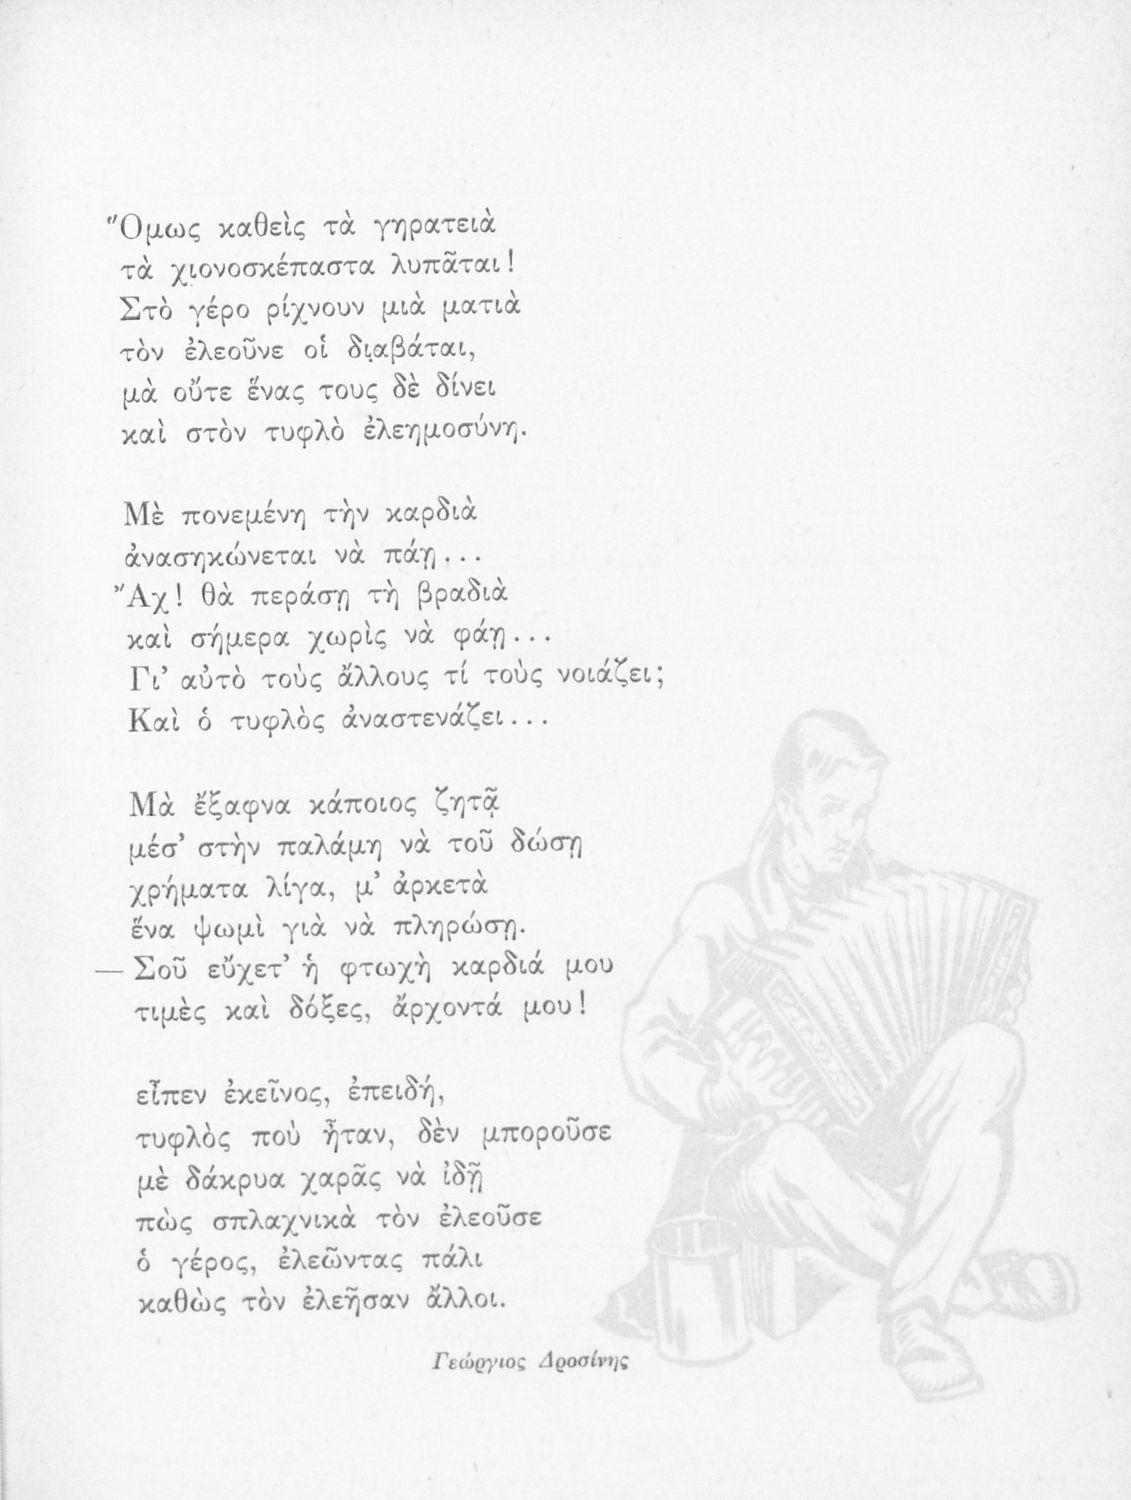 Ὅμως καθεὶς τὰ γηρατειὰ
τὰ χιονοσκέπαστα λυπᾶται!
Στὸ γέρο ρίχνουν μιὰ ματιὰ
τὸν ἐλεοῦνε οἱ διαβάται,
μὰ οὔτε ἕνας τους δὲ δίνει
καὶ στὸν τυφλὸ ἐλεημοσύνη.
Μὲ πονεμένη τὴν καρδιὰ
ἀνασηκώνεται νὰ πάῃ...
Ἄχ! θὰ περάσῃ τὴ βραδιὰ
καὶ σήμερα χωρὶς νὰ φάῃ...
Γι’ αὐτὸ τοὺς ἄλλους τί τοὺς νοιάζει;
Καὶ ὁ τυφλὸς ἀναστενάζει...
Μὰ ἔξαφνα κάποιος ζητᾷ
μέσ’ στὴν παλάμη νὰ τοῦ δώσῃ
χρήματα λίγα, μ’ ἀρκετὰ
ἕνα ψωμὶ γιὰ νὰ πληρώσῃ.
— Σοῦ εὔχετ’ ἡ φτωχὴ καρδιά μου
τιμὲς καὶ δόξες, ἄρχοντά μου!
εἶπεν ἐκεῖνος, ἐπειδή,
τυφλὸς ποὺ ἦταν, δὲν μποροῦσε
μὲ δάκρυα χαρᾶς νὰ ἰδῇ
πὼς σπλαχνικὰ τὸν ἐλεοῦσε
ὁ γέρος, ἐλεῶντας πάλι
καθὼς τὸν ἐλεῆσαν ἄλλοι.
Γεώργιος Δροσίνης